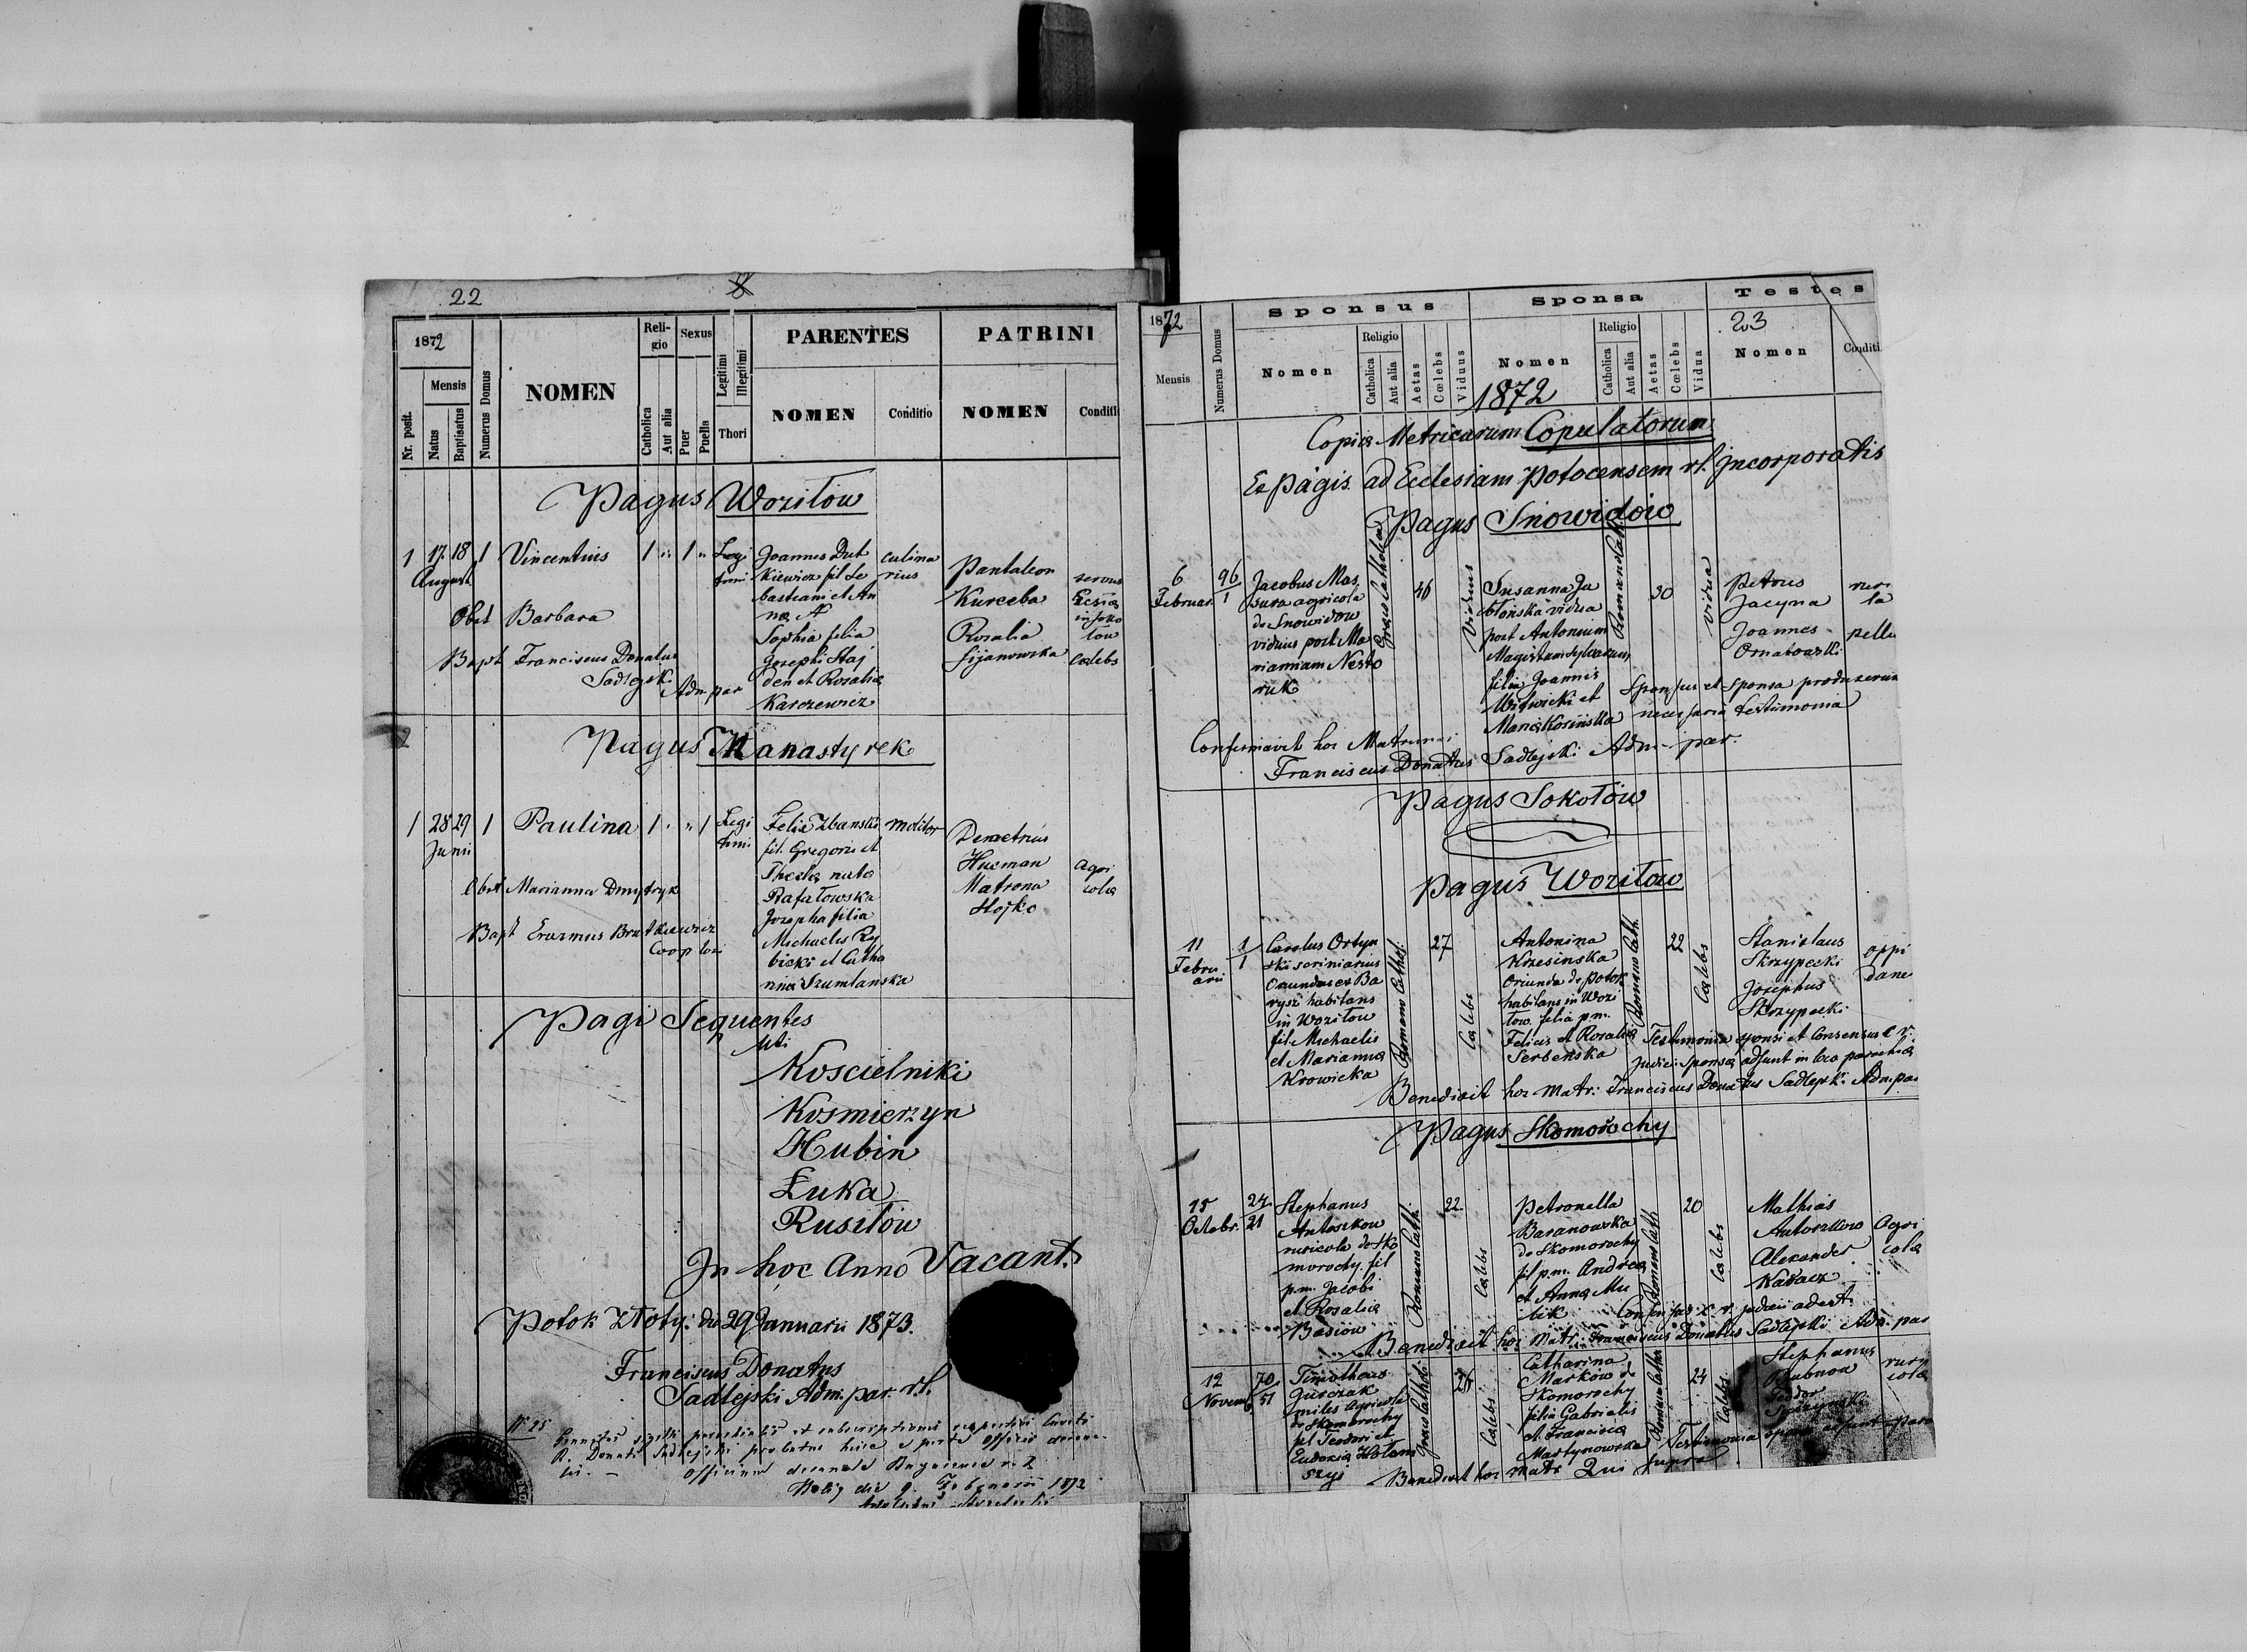 22
8
1872
Mensis
Nr. posit.
Natus
Baptisatus
Numerus Domus
NOMEN
Reli-
gio
Catholica
Aut alia
Sexus
Puer
Puella
Legitimi
Illegitimi
Thori
PARENTES
NOMEN
Conditio
PATRINI
NOMEN
Conditi
Pagus Woziłow
1 17 18 1 Vincentius 1 " 1 "
August
Legi
timi
Joannes Dut
kiewicz fil Se
bastiani et An
na N
Sophia filia
Josephi Staj
den et Rosalia
Karczewicz
culina
rius
Pantaleon
Kurceba
Rosalia
Sijanowska
servus
in Soko
łow
Cælebs
Obst Barbara
Bapt Franciscus Donatus
Sadlejski
Adm par
Pagus Manastyrek
1 28 29 1 Paulina 1 " " 1
Junii
Legi
timi
Felix Zbanski
fil. Gregorii et
Thecla nata
Rafałowska
Josepha filia
Michaelis Ry
bicki et Catha
rina Szumlanska
molitor
Demetrius
Hucman
Matrona
Stojko
Agri
cola
Obst Marianna Dmytryk
Bapt Erazmus Bratkiewicz
Coop loci
Pagi Sequentes
Uti
Koscielniki
Kosmierzyn
Hubin
Łuka
Rusiłow
In hoc Anno Vacant.
Potok Złoty. die 29 Januarii 1873.
Franciscus Donatus
Sadlejski Adm. par. r.l.
N 25
R. Donati Sadlejski
Officium decanale
1872
1872
Mensis
Numerus Domus
Sponsus
Nomen
Religio
Catholica
Aut alia
Aetas
Cœlebs
Viduus
Sponsa
Nomen
Religio
Catholica
Aut alia
Aetas
Cœlebs
Vidua
Testes
23
Nomen
Conditi
1872
Copia Metricarum Copulatorum
Ex pagis ad Ecclesiam Potocensem r.l. Incorporatis
Pagus Snowidow
6
Februar.
96
1
Jacobus Mas
sura agricola
de Snowidow
viduus post Ma
riannam Nesto
ruk
Graeco Catholica
46
Viduus
Susanna Ja
błońska vidua
post Antonium
Magistrum Sylvarum
filia Joannis
Witwicki et
Maria Kosińska
Romano Cath.
30
Vidua
Petrus
Jacyna
Joannes
Ornatowski
ruri
la
pellio
Sponsus et Sponsa produxerunt
necessaria testimonia
Confirmavit hoc Matrimoni
Franciscus Donatus Sadlejski Adm. par.
Pagus Sokołow
Pagus Woziłow
11
Febru
arii
1
1
Carolus Ortyn
ski scriniarius
Oriundus ex Ba
rysz habitans
in Woziłow
fil. Michaelis
et Marianna
Krowicka
Romano Cathol.
27
Cælebs
Antonina
Krzesinska
Oriunda de Potok
habitans in Wozi
łow. filia p.m.
Felicis et Rosalia
Serbenska
Romano Cath.
22
Cælebs
Stanislaus
Skrzypecki
Josephus
Skrzypecki
oppi
dane
Testimonia sponsi et Consensus c. r.
Judicii Sponsa adsunt in loco parochia
Benedixit hoc Matr: Franciscus Donatus Sadlejski Adm. par
Pagus Skomorochy
15
Octobr.
24
21
Stephanus
Antoszkow
ruricola de Sko
morochy. fil
p.m. Jacobi
et Rosalia
Basiow
Romano Cath.
22
Cælebs
Petronella
Baranowska
de Skomorochy
fil p.m. Andrea
et Anna Mu
lik
Romano Cath
20
Cælebs
Mathias
Antoszkow
Alexander
Kabacz
Agri
cola
Consensus c. r. judicii adest.
Benedixit hoc Matr: Franciscus Donatus Sadlejski Adm. par
12
Novemb
70
51
Timotheus
Jurczak
miles agricola
de Skomorochy
fil Teodori et
Eudoxia Hołom
szyj
Graeco Cathol.
26
Cælebs
Catharina
Markow de
Skomorochy
filia Gabrielis
et Francisca
Martynowska
Romano Cathol
24
Cælebs
Stephanus
Bubnow
Teodor
ruri
cola
Testimonia sponsi adsunt
Benedixit hoc matr Qui supra